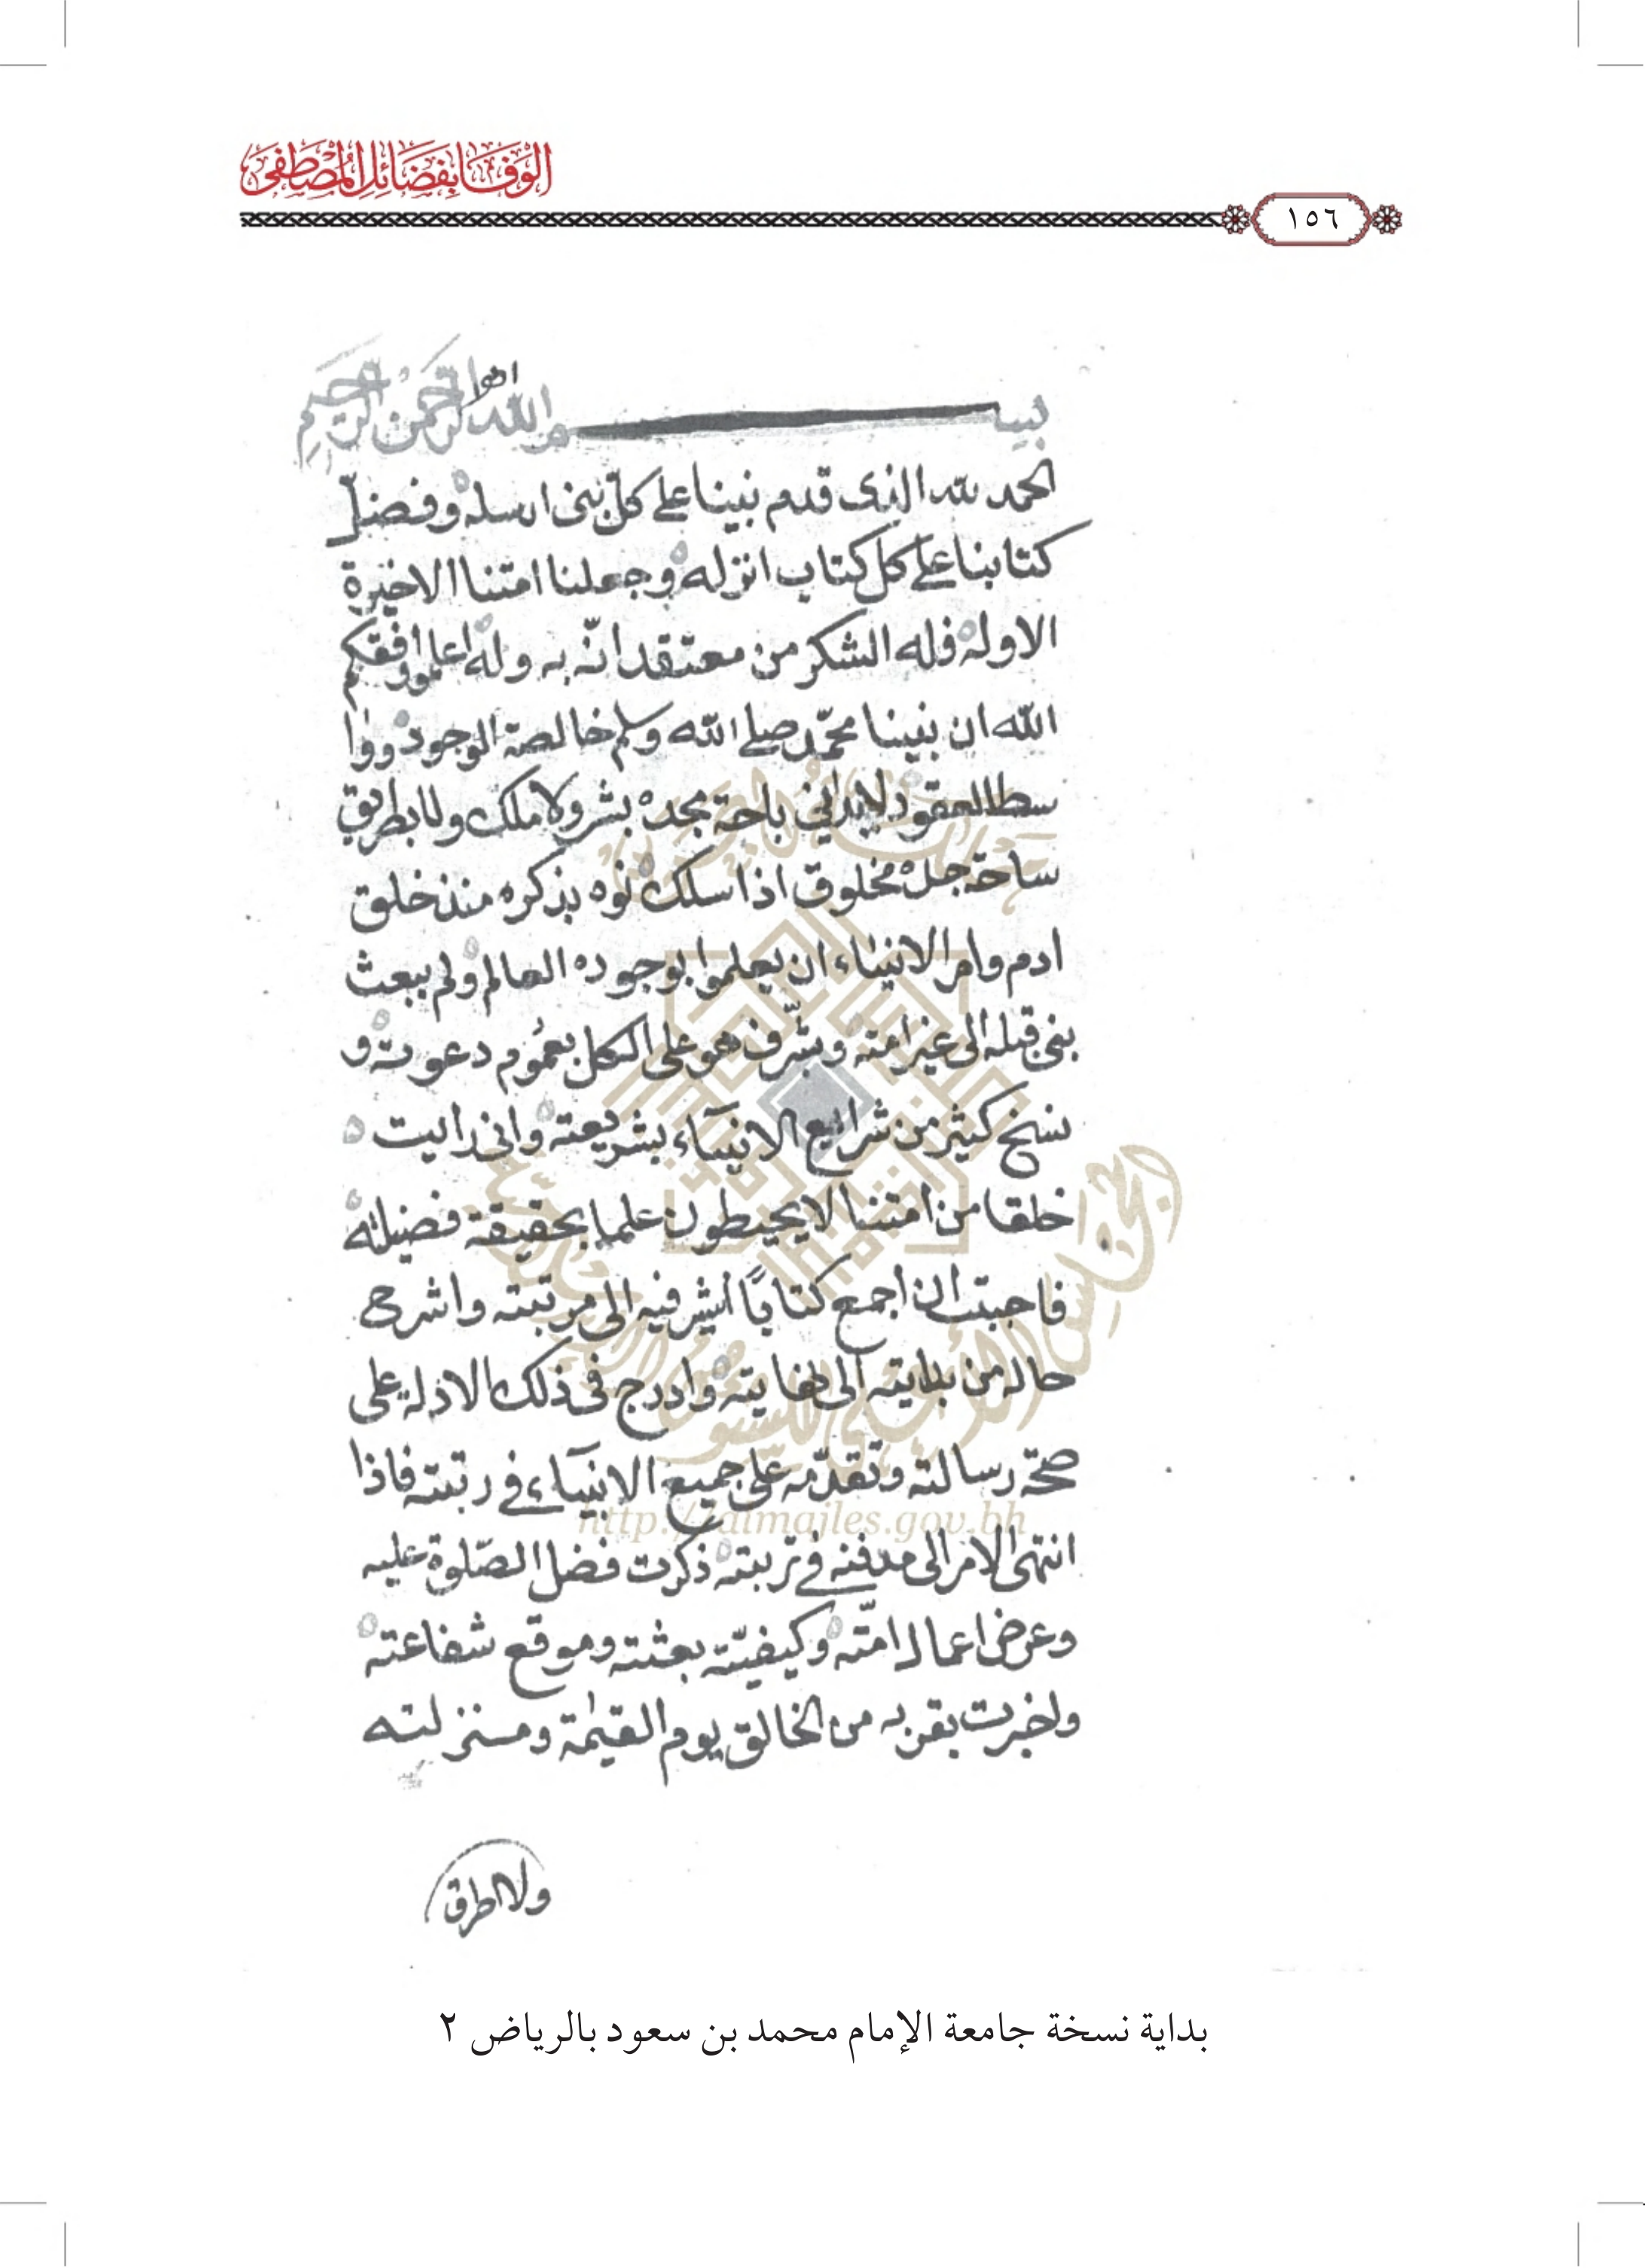 الوَفَا بِفَضَائِلِ المُصْطَفَى
١٥٦
بسم الله الرحمن الرحيم
الحمد لله الذى قدم نبينا على كل نبى ارسله وفضل
كتابنا على كل كتاب انزله وجعلنا امتنا الاخيرة
الاوله فله الشكر من معتقد انّه به وله اعلموا وفقكم
الله ان نبينا محمّد صلى الله وسلم خالصة الوجود ووا
سطة العقود لا يدانى باحة مجده بشر ولا ملك ولا يطريق
ساحة جده مخلوق اذا سلك نوه بذكره منذ خلق
ادم وامر الانبياء ان يعلموا بوجوده العالم ولم يبعث
نبى قبله الى غير امته وشّرف هو على الكل بعُموم دعوته و
نسخ كثير من شرايع الانبيآء بشريعته وانى رايت
خلقا من امتنا لا يحيطون علما بحقيقة فضيلته
فاجبت ان اجمع كتابًا اشير فيه الى مرتبته واشرح
حاله من بدايته الى نهايته وادرج فى ذلك الادلة على
صحّة رسالته وتقدّمه على جميع الانبيآء فى رتبته فاذا
انتهى الامر الى مدفنه فى تربته ذكرت فضل الصّلوة عليه
وعرض اعمال امّته وكيفيّة بعثته وموقع شفاعته
واخبرت بقربه من الخالق يوم القيمة ومنزلته
ولا اطرق
http://almajles.gov.bh
بداية نسخة جامعة الإمام محمد بن سعود بالرياض ٢